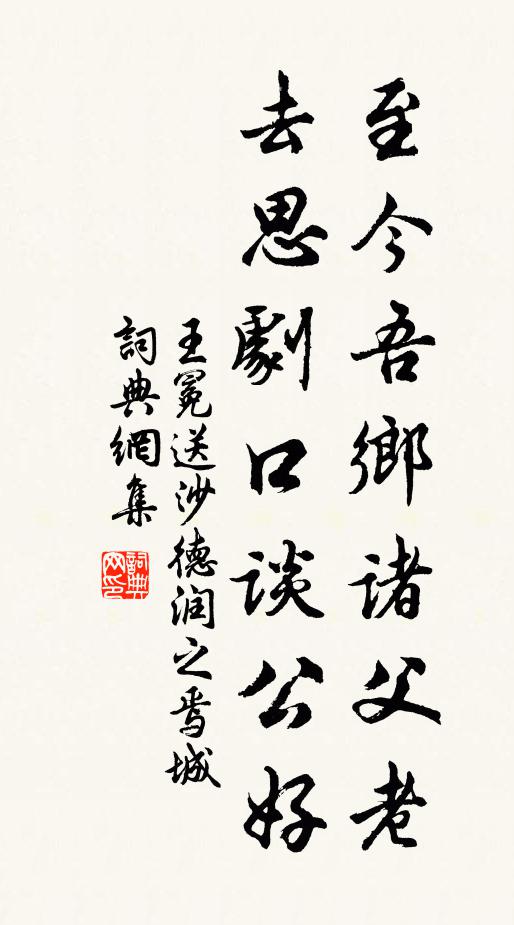 至今吾鄉諸父老
去思劇口談公好
王冕送沙德润之焉城
詞典網集
詞典网印